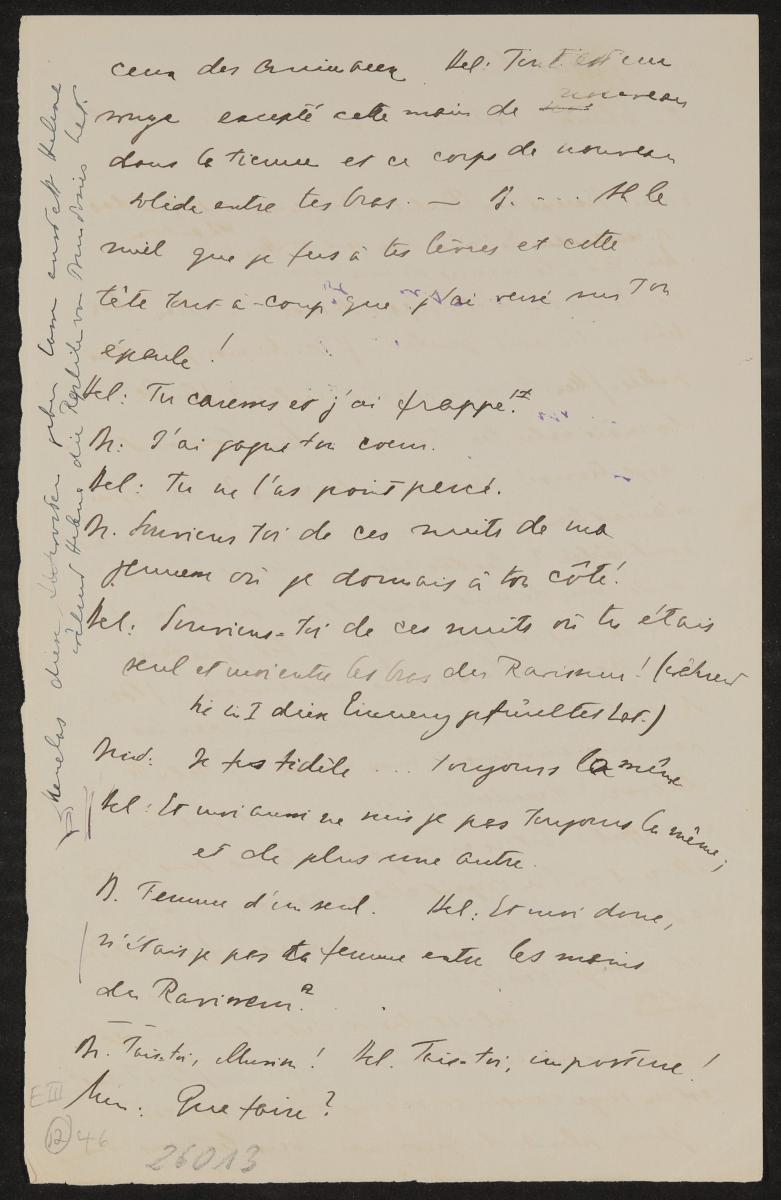 ceux des animaux Hel: Tout est un
songe excepté cette main de nouveau
dans la tienne et ce corps de nouveau
solide entre tes bras. — N. ... Ah le
miel que je fus à tes lèvres et cette
tête tout-à-coup que j'ai versé sur ton
épaule!
Hel: Tu caresses et j'ai frappé!
N: J'ai gagné ton coeur.
Hel: Tu ne l'as point percé.
N. Souviens toi de ces nuits de ma
jeunesse où je dormais à ton côté!
Hel: Souviens-toi de ces nuits où tu étais
seul et moi entre les bras du Ravisseur! (während
sie in I diese
Je fus fidèle ... toujours la même
Hel: Et moi aussi ne suis je pas toujours la même;
et de plus une autre.
N. Femme d'un seul. Hel: Et moi donc,
n'étais je pas ta femme entre les mains
du Ravisseur?
N. Tais-toi, illusion! Hel. Tais-toi, imposture!
Men: Que faire?
Menelas diese geben kann Helene
während Helene die Replik von
E III
12 46
26013